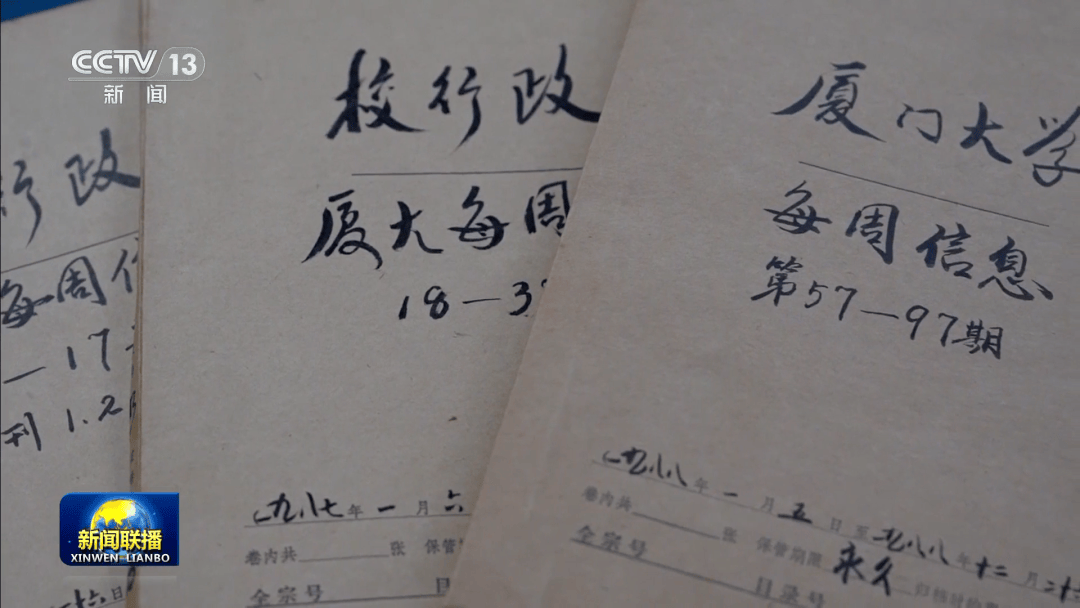 CCTV 13
新闻
行政
每周信
一17
刊 1.2
十六日
校行政
厦大每周
18—3
一九八七年一月六
卷内共 张 保管
全宗号 目
厦门大学
每周信息
第57—97期
一九八八年一月五日至一九八八年十二月二十
卷内共 张 保管期限 永久 归档
全宗号 目录号
新闻联播
XINWEN-LIANBO